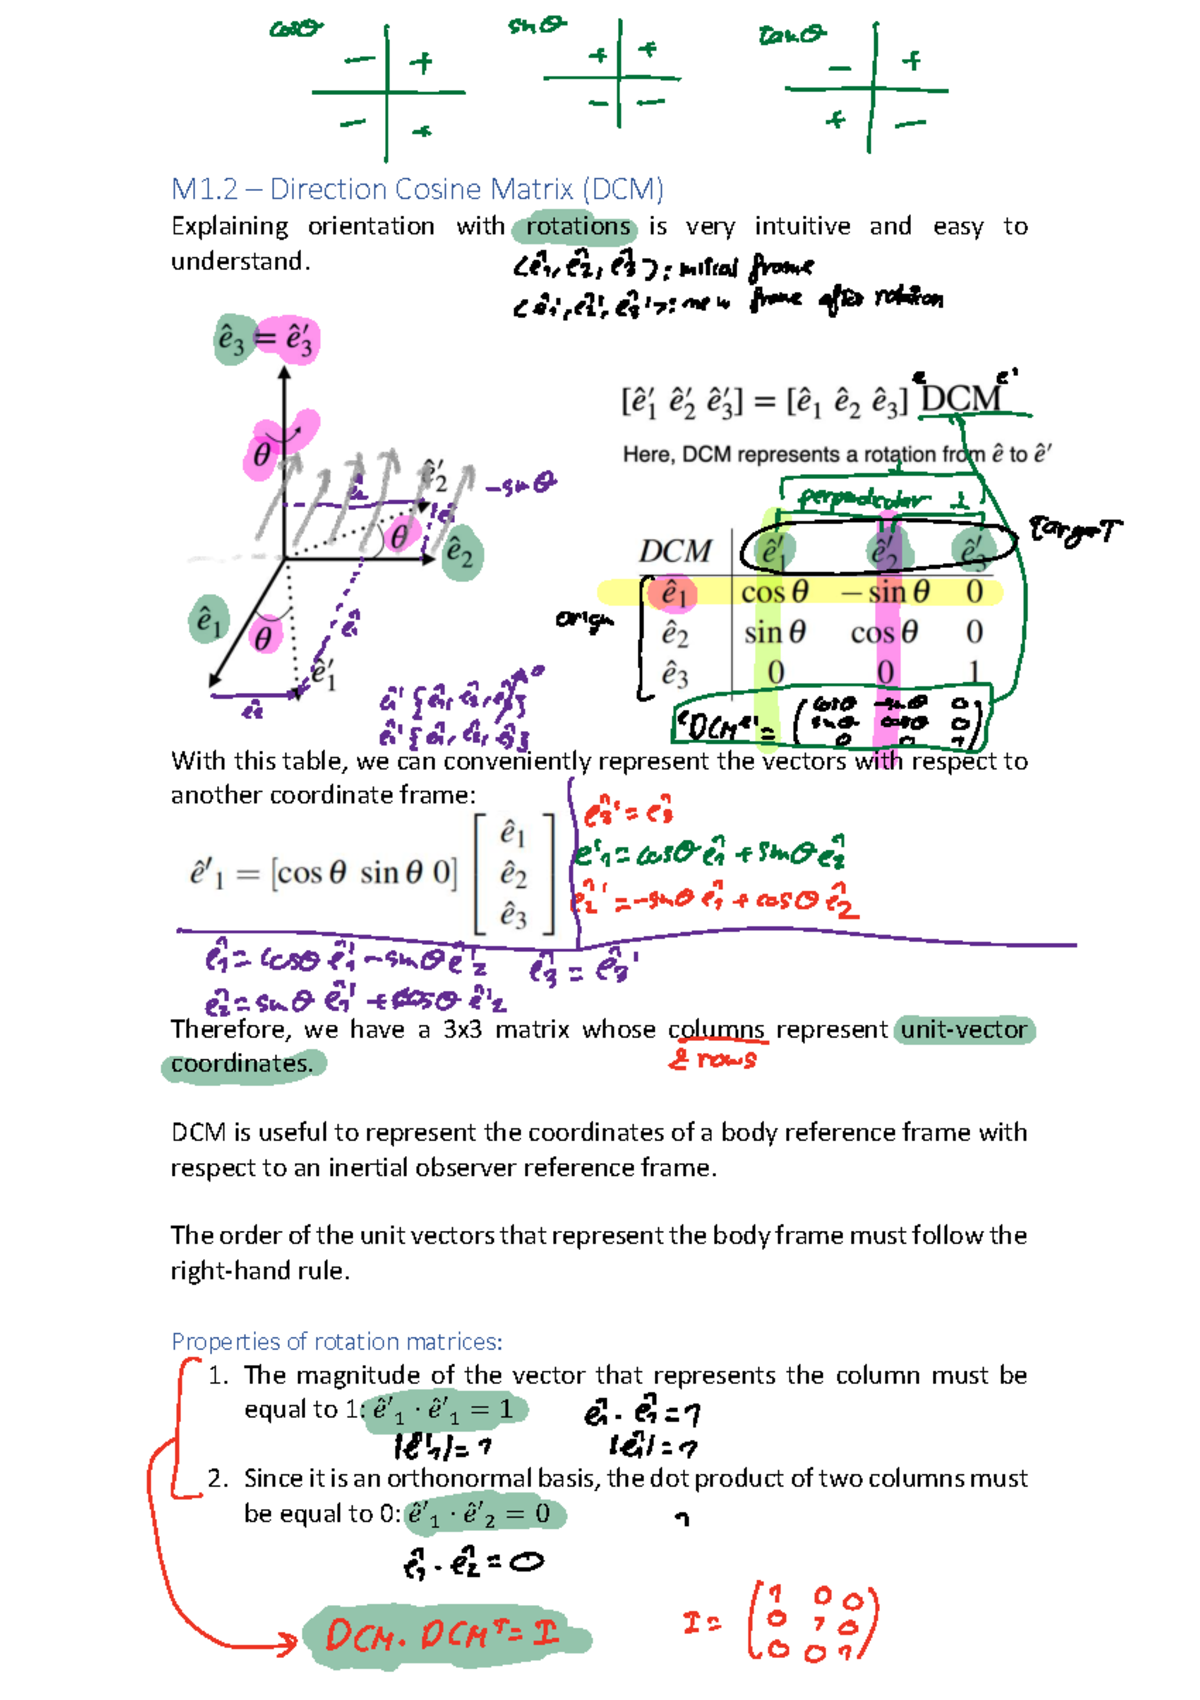 cosθ sinθ tanθ
− + + + − +
− + − − + −
M1.2 – Direction Cosine Matrix (DCM)
Explaining orientation with rotations is very intuitive and easy to
understand.
(ê1, ê2, ê3): initial frame
(ê1', ê2', ê3'): new frame after rotation
ê₃ = ê′₃
θ
ê′₂
-sinθ
θ
ê₂
ê₁
θ
ê′₁
[ê′₁ ê′₂ ê′₃] = [ê₁ ê₂ ê₃] ᵉDCMᵉ'
Here, DCM represents a rotation from ê to ê′
perpendicular ⊥
DCM ê′₁ ê′₂ ê′₃ Target
ê₁ cos θ − sin θ 0
origin
ê₂ sin θ cos θ 0
ê₃ 0 0 1
ᵉDCMᵉ' = (cosθ -sinθ 0
sinθ cosθ 0
0 0 1)
With this table, we can conveniently represent the vectors with respect to
another coordinate frame:
ê′₁ = [cos θ sin θ 0] [ê₁ ê₂ ê₃]
ê3' = ê3
e'1 = cosθ ê1 + sinθ ê2
ê2' = -sinθ ê1 + cosθ ê2
ê1 = cosθ ê1' - sinθ ê'2 ê3 = ê3'
ê2 = sinθ ê1' + cosθ ê'2
Therefore, we have a 3x3 matrix whose columns represent unit-vector
& rows
coordinates.
DCM is useful to represent the coordinates of a body reference frame with
respect to an inertial observer reference frame.
The order of the unit vectors that represent the body frame must follow the
right-hand rule.
Properties of rotation matrices:
1. The magnitude of the vector that represents the column must be
equal to 1: ê′₁ · ê′₁ = 1 ê1 · ê1 = 1
|ê'1| = 1 |ê1| = 1
2. Since it is an orthonormal basis, the dot product of two columns must
be equal to 0: ê′₁ · ê′₂ = 0
ê1 · ê2 = 0
DCM · DCMᵀ = I
I = (1 0 0
0 1 0
0 0 1)